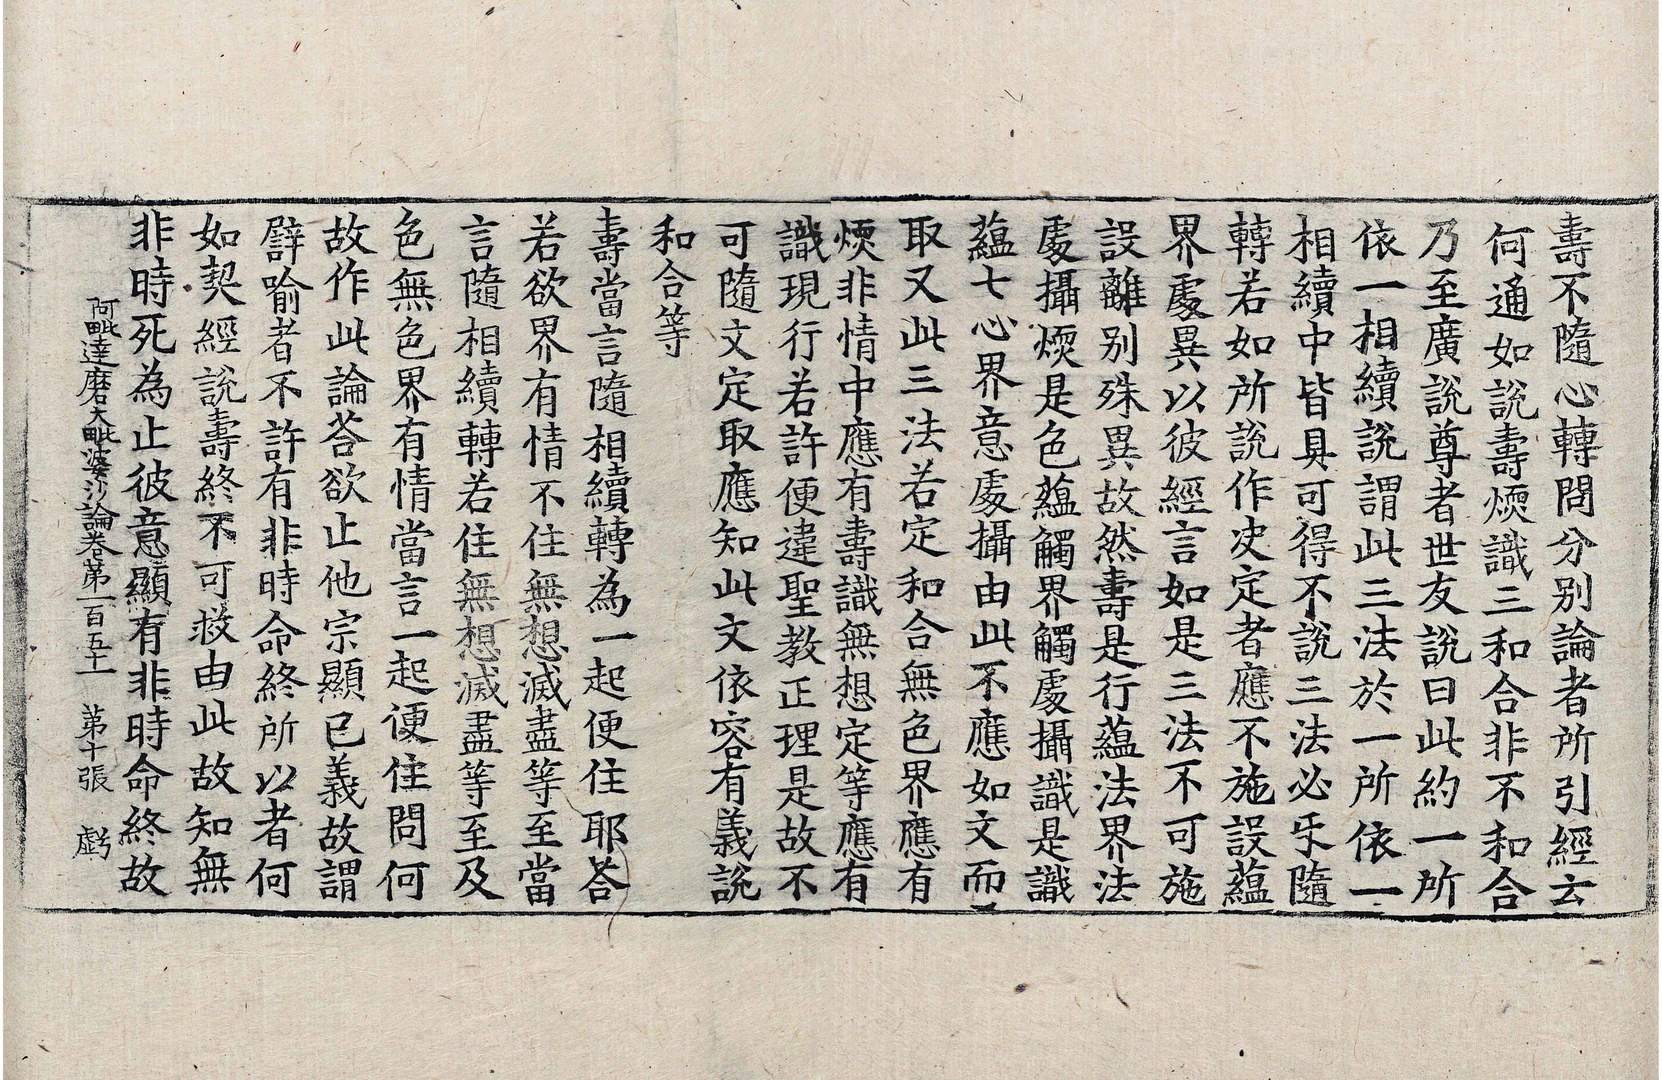 壽不隨心轉問分別論者所引經云
何通如說壽煗識三和合非不和合
乃至廣說尊者世友說曰此約一所
依一相續說謂此三法於一所依一
相續中皆具可得不說三法必乐隨
轉若如所說作决定者應不施設蘊
界處異以彼經言如是三法不可施
設離別殊異故然壽是行蘊法界法
處攝煗是色蘊觸界觸處攝識是識
蘊七心界意處攝由此不應如文而
取又此三法若定和合無色界應有
煗非情中應有壽識無想定等應有
識現行若許便違聖教正理是故不
可隨文定取應知此文依容有義說
和合等
壽當言隨相續轉為一起便住耶荅
若欲界有情不住無想滅盡等至當
言隨相續轉若住無想滅盡等至及
色無色界有情當言一起便住問何
故作此論荅欲止他宗顯已義故謂
譬喻者不許有非時命終所以者何
如契經說壽終不可救由此故知無
非時死為止彼意顯有非時命終故
阿毗達磨大毗婆沙論卷第一百五十一　第十張　虧